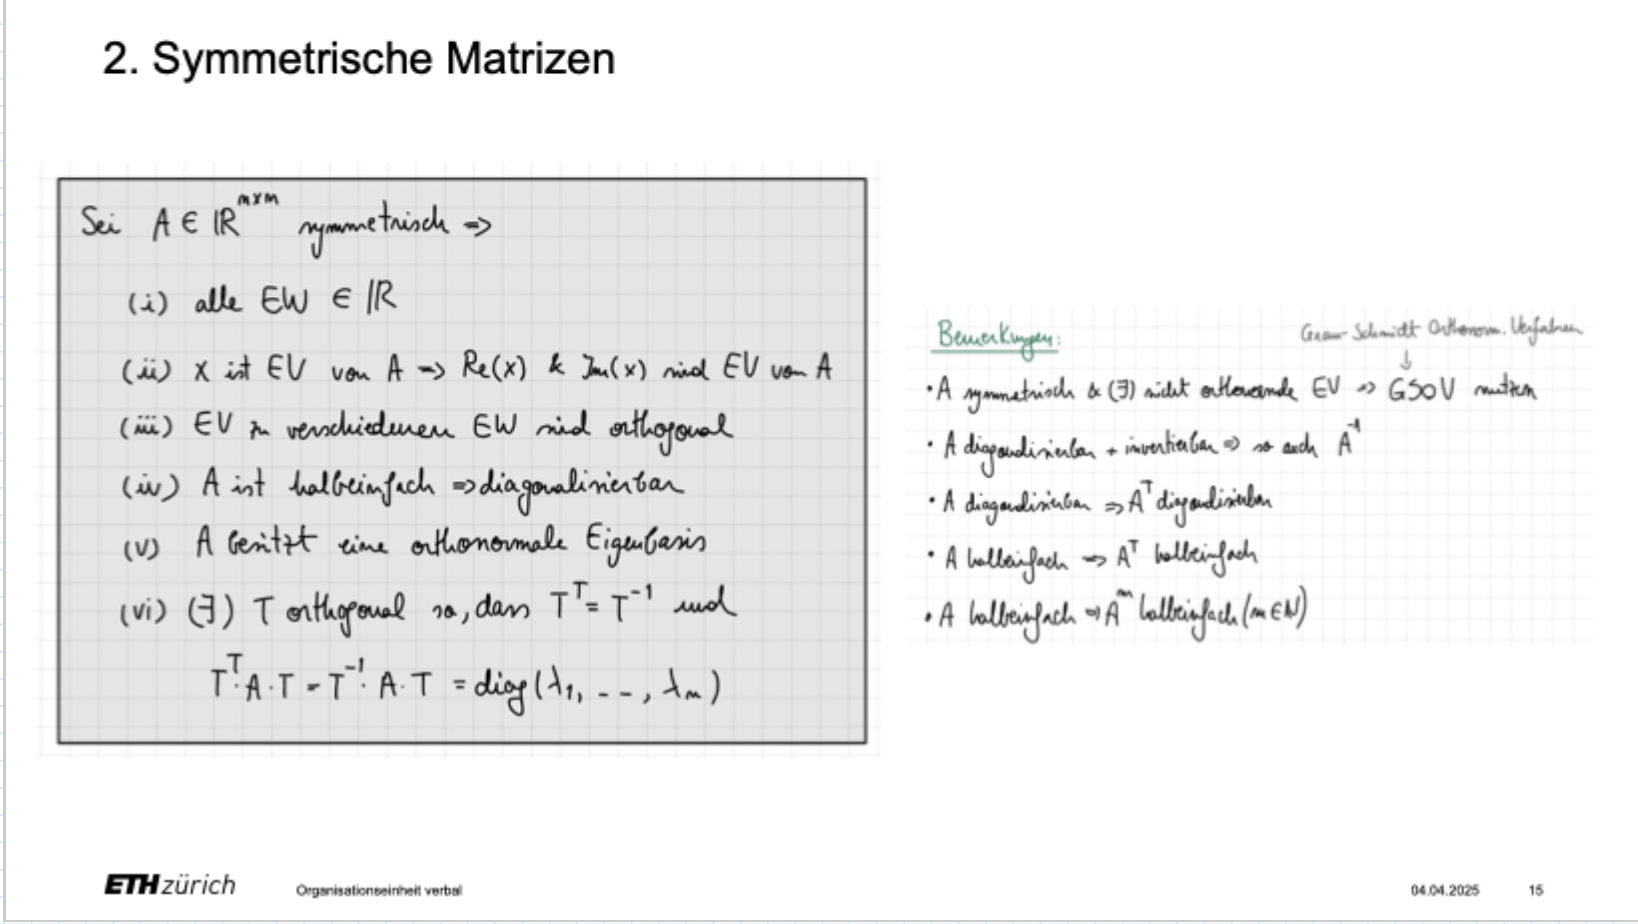 2. Symmetrische Matrizen
Sei A ∈ ℝ^{n×n} symmetrisch ⇒
(i) alle EW ∈ ℝ
(ii) x ist EV von A ⇒ Re(x) & Im(x) sind EV von A
(iii) EV zu verschiedenen EW sind orthogonal
(iv) A ist halbeinfach ⇒ diagonalisierbar
(v) A besitzt eine orthonormale Eigenbasis
(vi) (∃) T orthogonal so, dass T^T = T^{-1} und
T^T · A · T = T^{-1} · A · T = diag(λ₁, - - , λₙ)
Bemerkungen:
Gram-Schmidt Orthonom. Verfahren
↓
• A symmetrisch & (∃) nicht EV ⇒ GSOV nutzen
• A diagonalisierbar + invertierbar ⇒ so auch A^{-1}
• A diagonalisierbar ⇒ A^T diagonalisierbar
• A halbeinfach ⇒ A^T halbeinfach
• A halbeinfach ⇒ A^m halbeinfach (m ∈ ℕ)
ETH zürich
Organisationseinheit verbal
04.04.2025
15